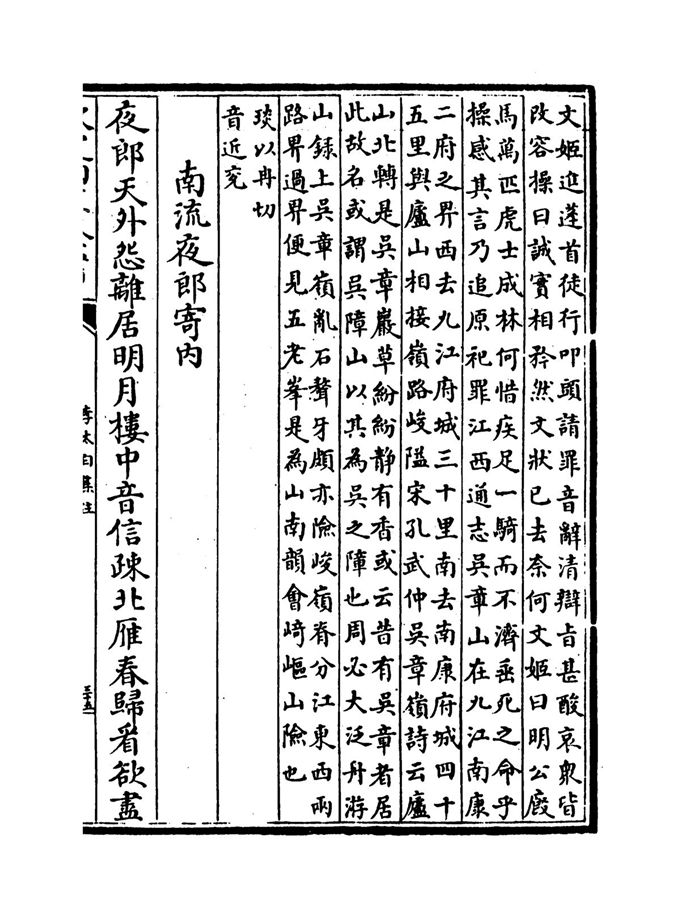 文姬進蓬首徒行叩頭請罪音辭清辯旨甚酸哀衆皆
改容操曰誠實相矜然文狀已去奈何文姬曰明公廄
馬萬匹虎士成林何惜疾足一騎而不濟垂死之命乎
操感其言乃追原祀罪江西通志吳章山在九江南康
二府之界西去九江府城三十里南去南康府城四十
五里與廬山相接嶺路峻隘宋孔武仲吳章嶺詩云廬
山北轉是吳章巖草紛紛靜有香或云昔有吳章者居
此故名或謂吳障山以其為吳之障也周必大泛舟游
山録上吳章嶺亂石聱牙頗亦險峻嶺脊分江東西兩
路界過界便見五老峯是為山南韻會崎嶇山險也
琰以冉切
音近兖
南流夜郎寄內
夜郎天外怨離居明月樓中音信疎北雁春歸看欲盡
李太白集注
三十五